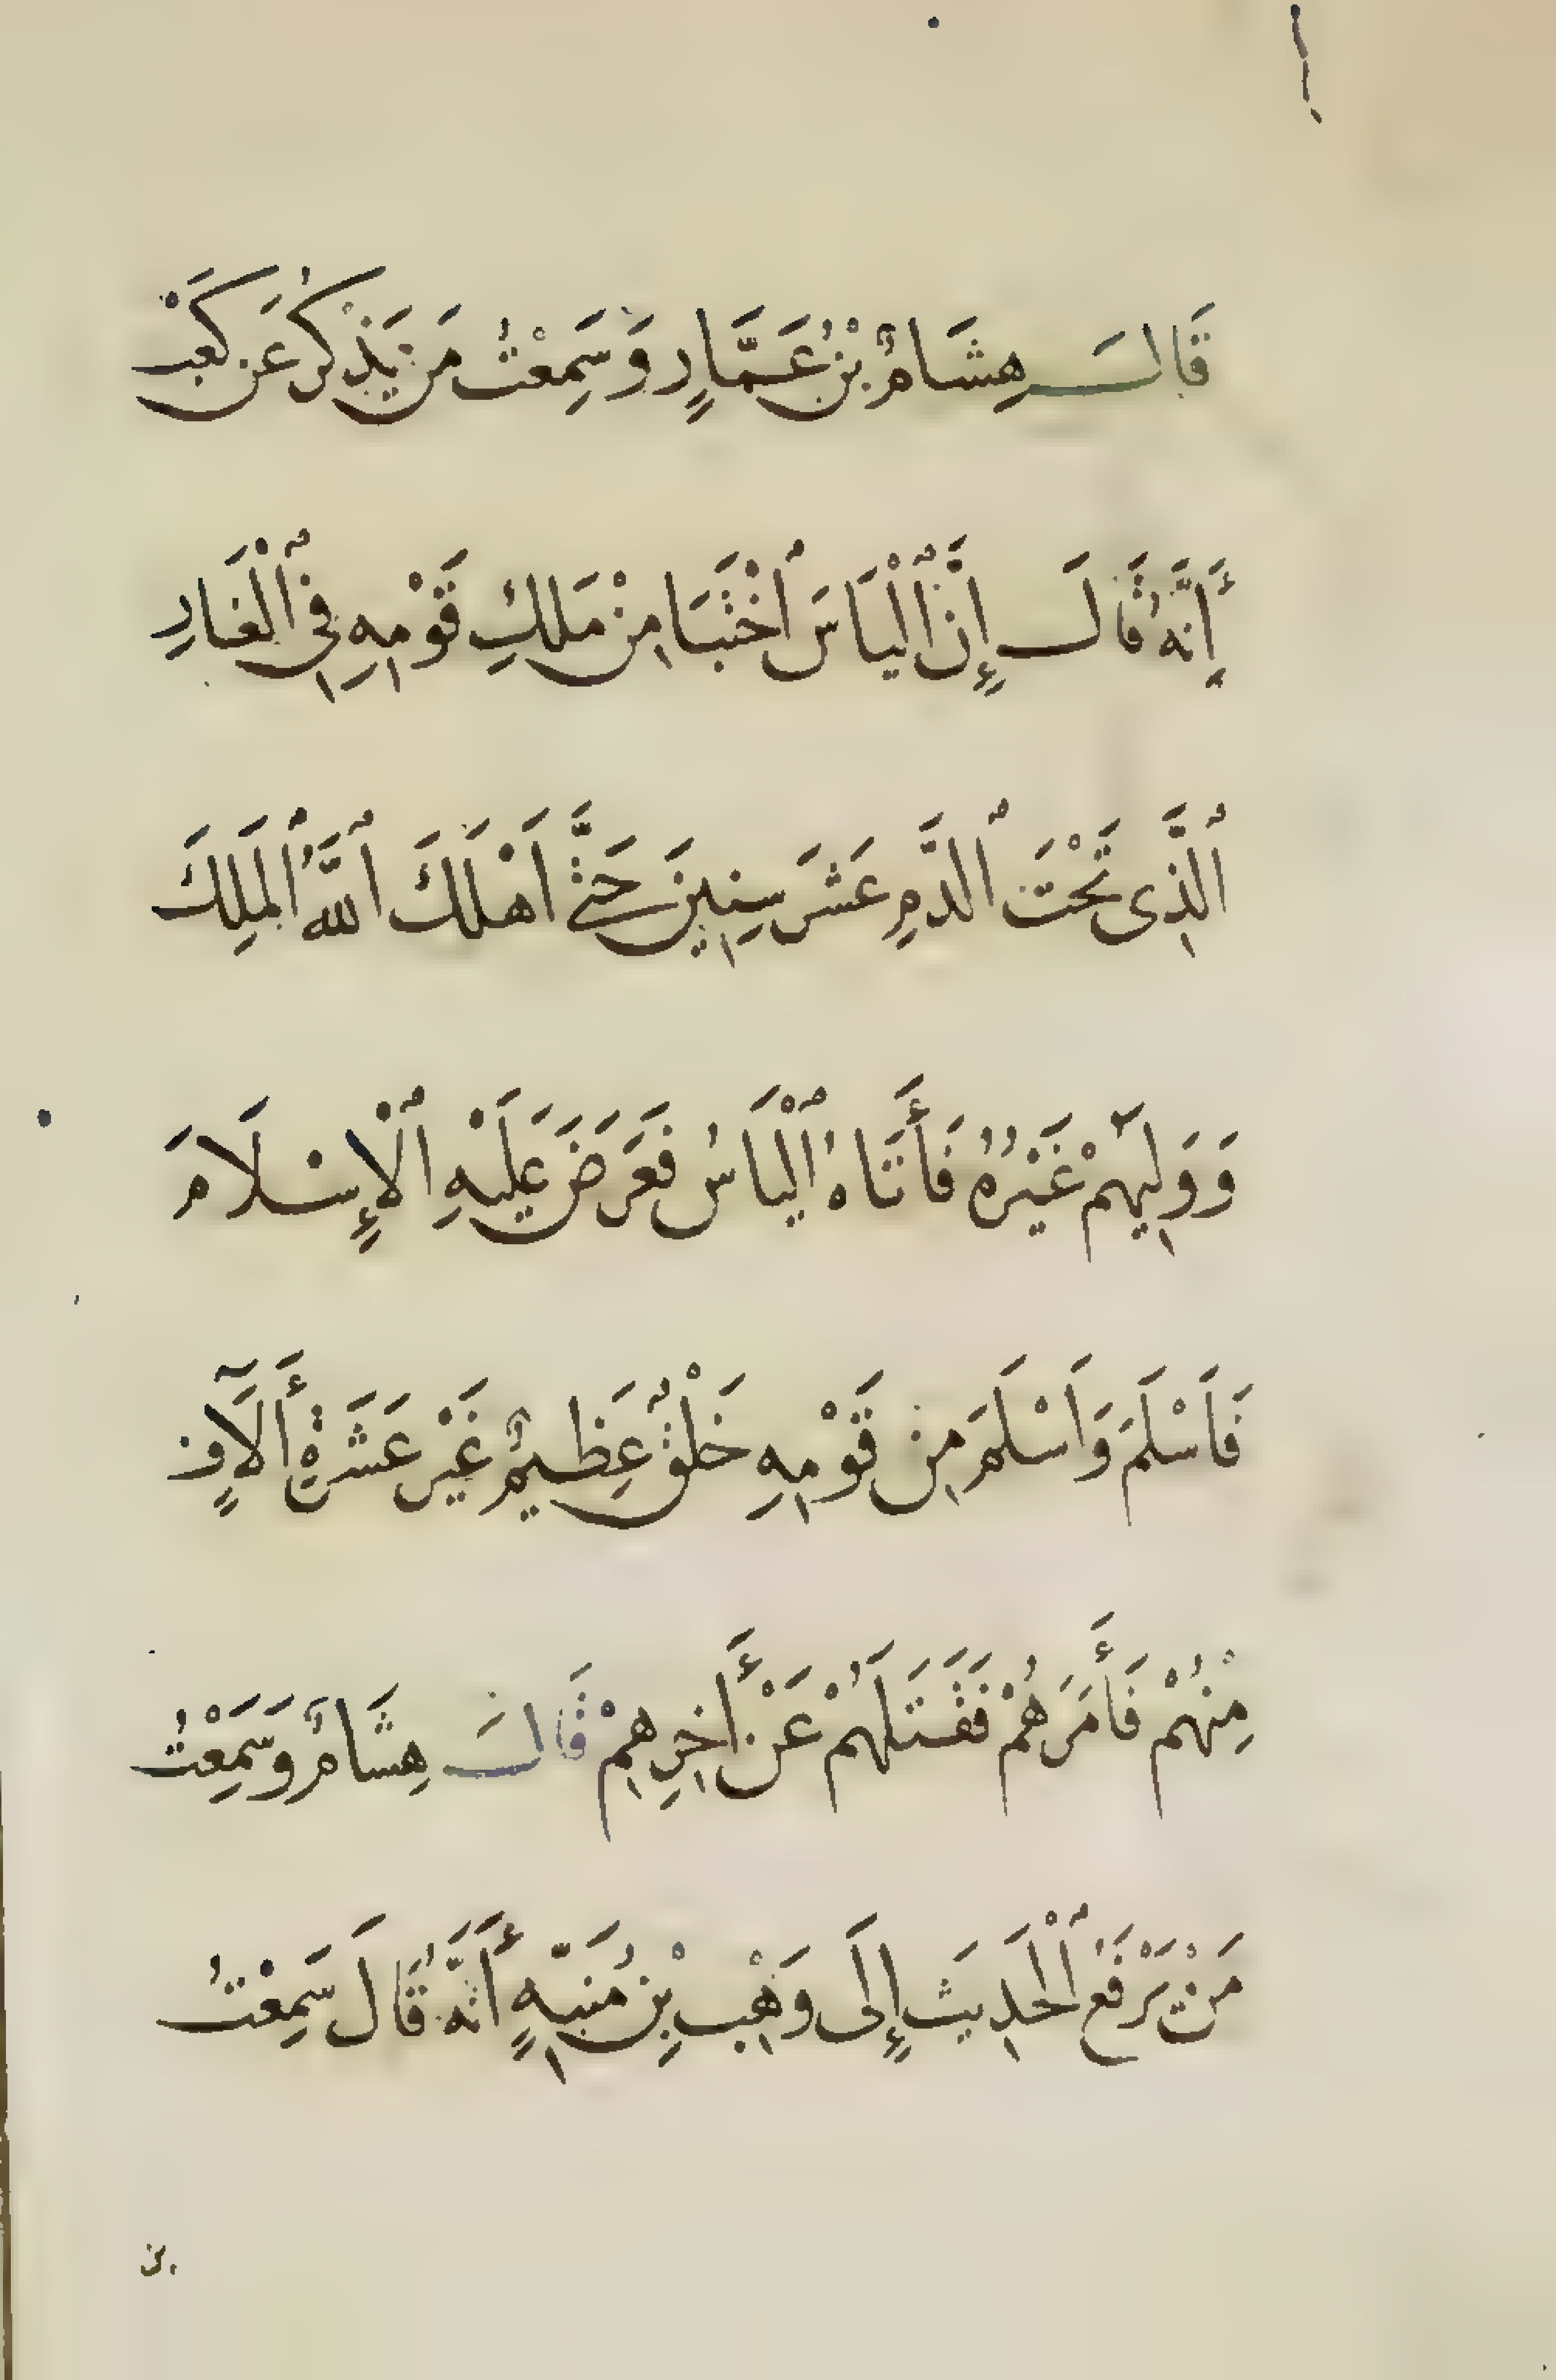 قَالَ هِشَامُ بْنُ عَمَّارٍ وَسَمِعْتُ مَن يَذْكُرُ عَن كَعْبٍ
أَنَّهُ قَالَ إِنَّ ٱلْيَاسَ ٱخْتَبَا مِنْ مَلِكِ قَوْمِهِ فِى ٱلْغَارِ
ٱلَّذِى تَحْتَ ٱلدَّمِ عَشَرَ سِنِينَ حَتَّى اَهْلَكَ ٱللَّهُ ٱلْمَلِكَ
وَوَلِيَهُمْ غَيْرُهُ فَأَتَاهُ ٱلْيَاسُ فَعَرَضَ عَلَيْهِ ٱلْإِسْلَامَ
فَاَسْلَمَ وَاَسْلَمَ مِن قَوْمِهِ خَلْقٌ عَظِيمٌ غَيْرَ عَشَرَةِ أَلَآفٍ
مِنْهُمْ فَأَمَرَهُمْ فَقَتَلَهُمْ عَنْ أَخِرِهِمْ قَالَ هِشَامٌ وَسَمِعْتُ
مَنْ يَرْفَعُ ٱلْحَدِيثَ إِلَى وَهْبِ بْنِ مُنَبِّهٍ أَنَّهُ قَالَ سَمِعْتُ